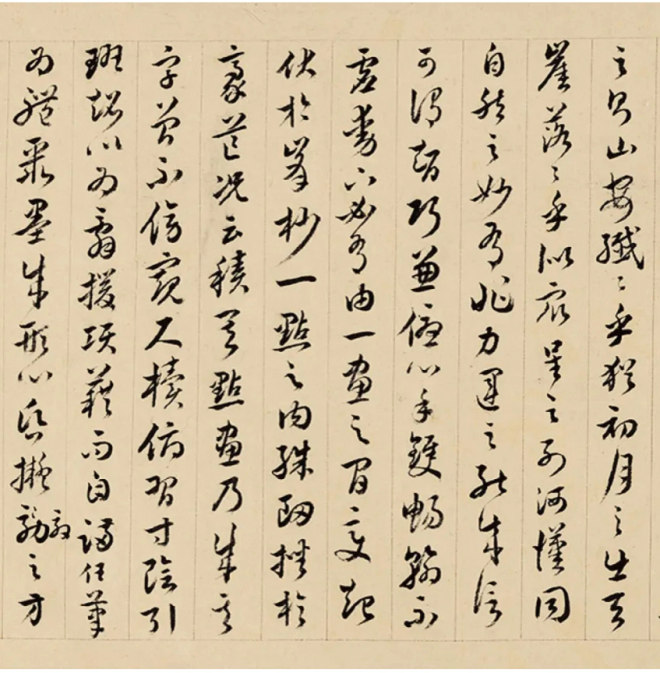 之則山安纖〻乎猶初月之出天
崖落〻乎似眾星之列河漢同
自然之妙有非力運之能成信
可謂智巧兼優心手雙暢翰不
虛動下必有由一畫之間變起
伏於峯杪一點之內殊衄挫於
豪芒況云積其點畫乃成其
字曾不傍窺尺牘俯習寸陰引
班超以為辭援項籍而自滿任筆
為體聚墨成形心昏擬効之方